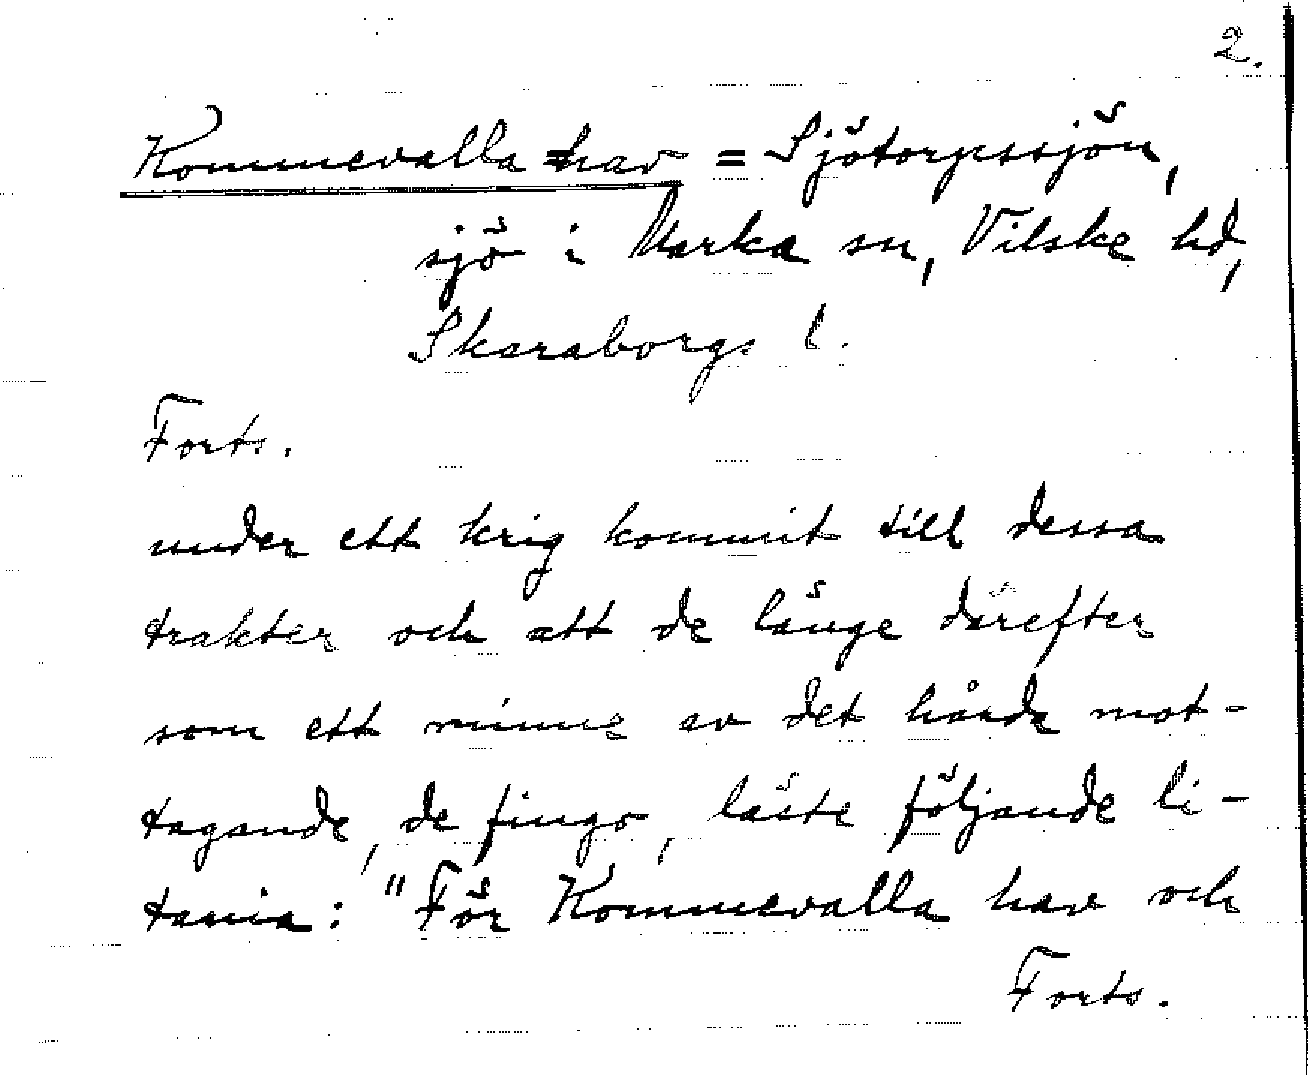 2.
Kommevalla hav = Sjötorpssjön,
sjö i Marka sn, Vilske hd,
Skaraborgs l.
Forts.
under ett krig kommit till dessa
trakter och att de länge därefter
som ett minne av det hårda mot-
tagande, de fingo, läste följande li-
tania: "För Kommevalla hav och
Forts.